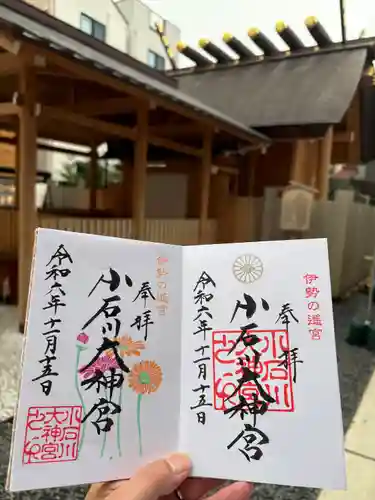 伊勢の遥宮
奉拝
小石川大神宮
令和六年十一月十五日
伊勢の遥宮
奉拝
小石川大神宮
令和六年十一月十五日
小石川
大神宮
之印